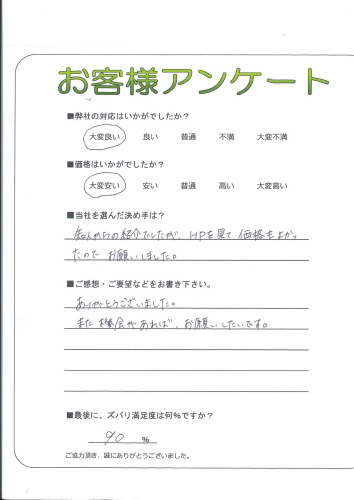 お客様アンケート
■弊社の対応はいかがでしたか？
大変良い 良い 普通 不満 大変不満
■価格はいかがでしたか？
大変安い 安い 普通 高い 大変高い
■当社を選んだ決め手は？
知人からの紹介でしたが、HPを見て価格もよかっ
たので お願いしました。
■ご感想・ご要望などをお書き下さい。
ありがとうございました。
また機会があれば、お願いしたいです。
■最後に、ズバリ満足度は何％ですか？
90 %
ご協力頂き、誠にありがとうございました。